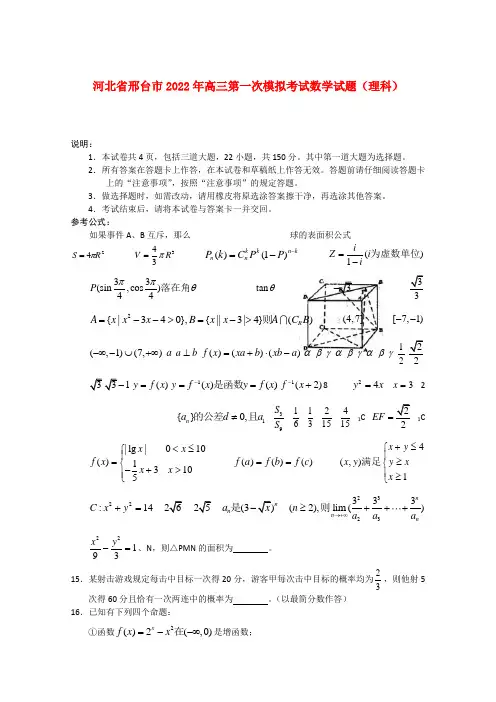 河北省邢台市2022年高三第一次模拟考试数学试题(理科)
说明:
1.本试卷共4页,包括三道大题,22小题,共150分。其中第一道大题为选择题。
2.所有答案在答题卡上作答,在本试卷和草稿纸上作答无效。答题前请仔细阅读答题卡
上的“注意事项”,按照“注意事项”的规定答题。
3.做选择题时,如需改动,请用橡皮将原选涂答案擦干净,再选涂其他答案。
4.考试结束后,请将本试卷与答题卡一并交回。
参考公式:
如果事件A、B互斥,那么 球的表面积公式
S = 4πR² V = 4/3 πR³ P_n(k) = C_n^k P^k (1-P)^{n-k} Z = i/(1-i) (i为虚数单位)
P(sin 3π/4, cos 3π/4)落在角θ tanθ √3/3
A = {x | x² - 3x - 4 > 0}, B = {x || x - 3 |> 4}则A∩(C_R B) (4,7] [-7,-1)
(-∞,-1)∪(7,+∞) a a⊥b f(x) = (xa + b)·(xb - a) α β γ α β γ α β γ 1/2 √2/2
√3 √3 -1 y = f(x) y = f⁻¹(x)是函数y = f(x) y = f⁻¹(x+2) 8 y² = 4x x = 3 2
{a_n}的公差d ≠ 0,且a₁ S₃/S₉ 1/6 1/3 2/15 4/15 ₁C EF = √2/2 ₁C
f(x) = { | lg x | 0 < x ≤ 10; -1/5 x + 3 x > 10 f(a) = f(b) = f(c) (x, y)满足 { x + y ≤ 4; y ≥ x; x ≥ 1
C : x² + y² = 14 2√6 2√5 a_n是(3-√x)ⁿ (n ≥ 2),则 lim_{n→+∞} (3²/a₂ + 3³/a₃ + ⋯ + 3ⁿ/a_n)
x²/9 - y²/3 = 1、N,则△PMN的面积为 。
15.某射击游戏规定每击中目标一次得20分,游客甲每次击中目标的概率均为2/3,则他射5
次得60分且恰有一次两连中的概率为 。(以最简分数作答)
16.已知有下列四个命题:
①函数f(x) = 2ˣ - x²在(-∞,0)是增函数;